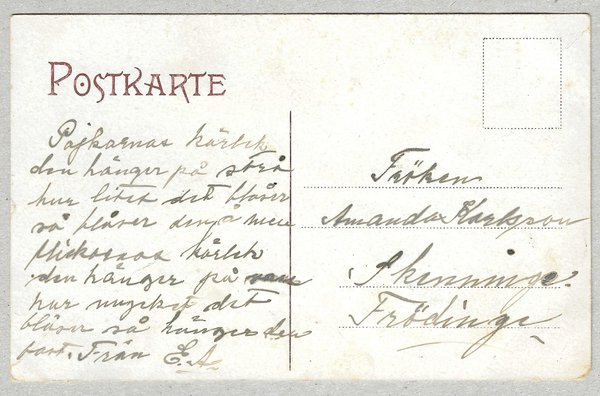 POSTKARTE
Pojkarnas kärlek
den hänger på strå
hur litet det blåser
så blåser den å
flickornas kärlek
den hänger på
hur mycket det
blåser så hänger den
fast. Från E. A
Fröken
Amanda Karlsson
Skenninge.
Frödinge